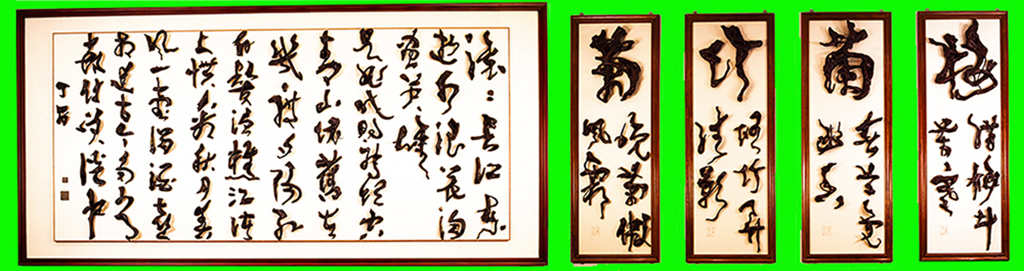 滚滚长江东
逝水浪花淘
尽英雄
是非成败转头空
青山依旧在
几度夕阳红
白发渔樵江渚
上惯看秋月春
风一壶浊酒喜
相逢古今多少事
都付笑谈中
梅
腊梅斗
雪
蘭
春兰
幽香
竹
竹弄
影
菊
晚菊傲
风霜